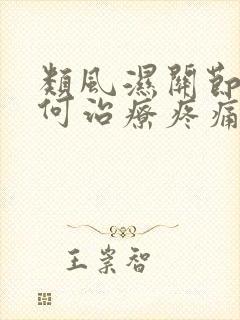 類風濕關節
何治療疼痛
王崇智